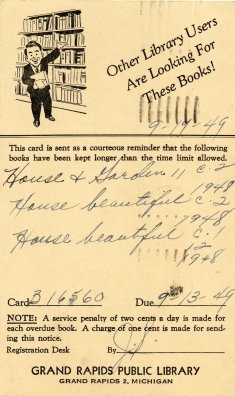 Other Library Users
Are Looking For
These Books!
9-19-49
This card is sent as a courteous reminder that the following
books have been kept longer than the time limit allowed.
House & Garden 11 c-2
1948
House beautiful c-2
1948
House beautful c. 1
2
1948
Card B 16560 Due 9-13-49
NOTE: A service penalty of two cents a day is made for
each overdue book. A charge of one cent is made for send-
ing this notice.
Registration Desk By
GRAND RAPIDS PUBLIC LIBRARY
GRAND RAPIDS 2, MICHIGAN